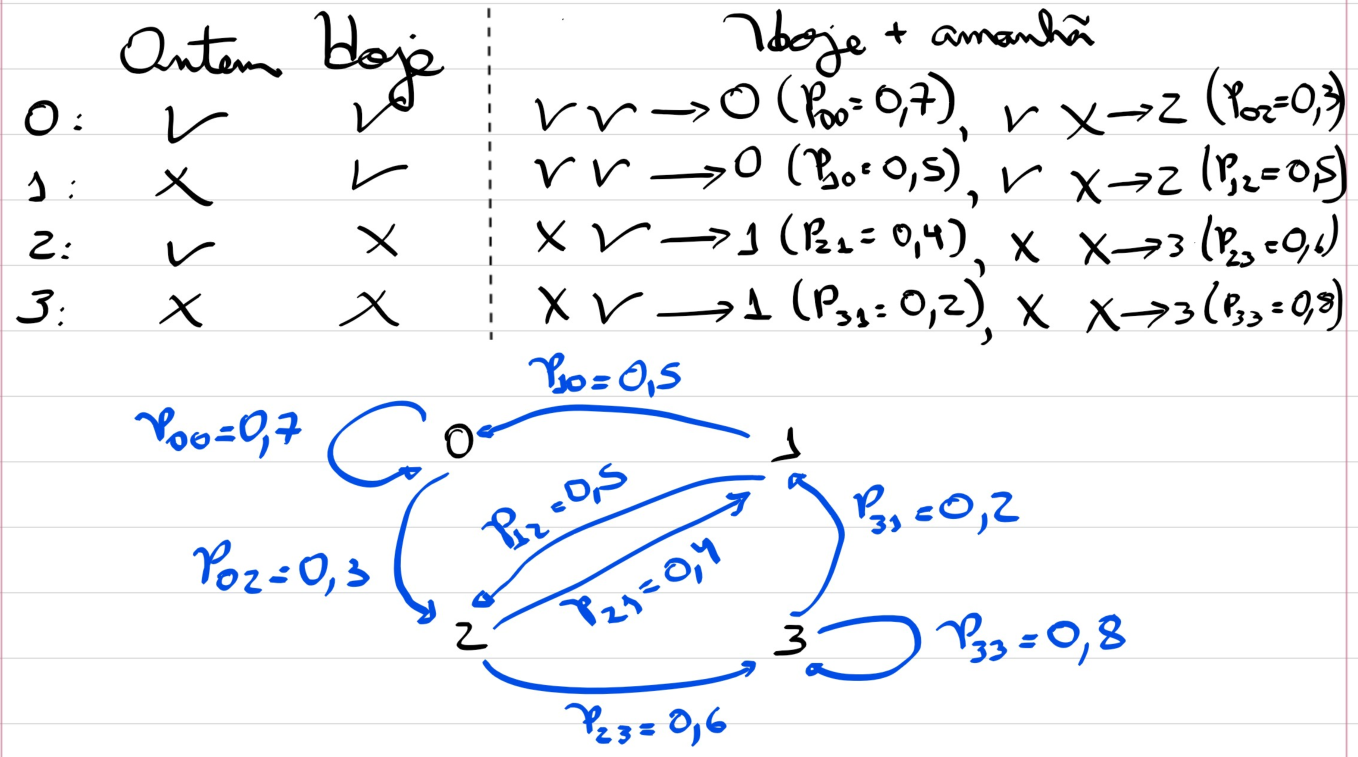 Ontem Hoje Hoje + amanhã
0: ✓ ✓ ✓ ✓ → 0 (P₀₀ = 0,7), ✓ X → 2 (P₀₂ = 0,3)
1: X ✓ ✓ ✓ → 0 (P₁₀ = 0,5), ✓ X → 2 (P₁₂ = 0,5)
2: ✓ X X ✓ → 1 (P₂₁ = 0,4), X X → 3 (P₂₃ = 0,6)
3: X X X ✓ → 1 (P₃₁ = 0,2), X X → 3 (P₃₃ = 0,8)
P₁₀ = 0,5
P₀₀ = 0,7
0 1
P₁₂ = 0,5
P₃₁ = 0,2
P₀₂ = 0,3
P₂₁ = 0,4
2 3
P₃₃ = 0,8
P₂₃ = 0,6